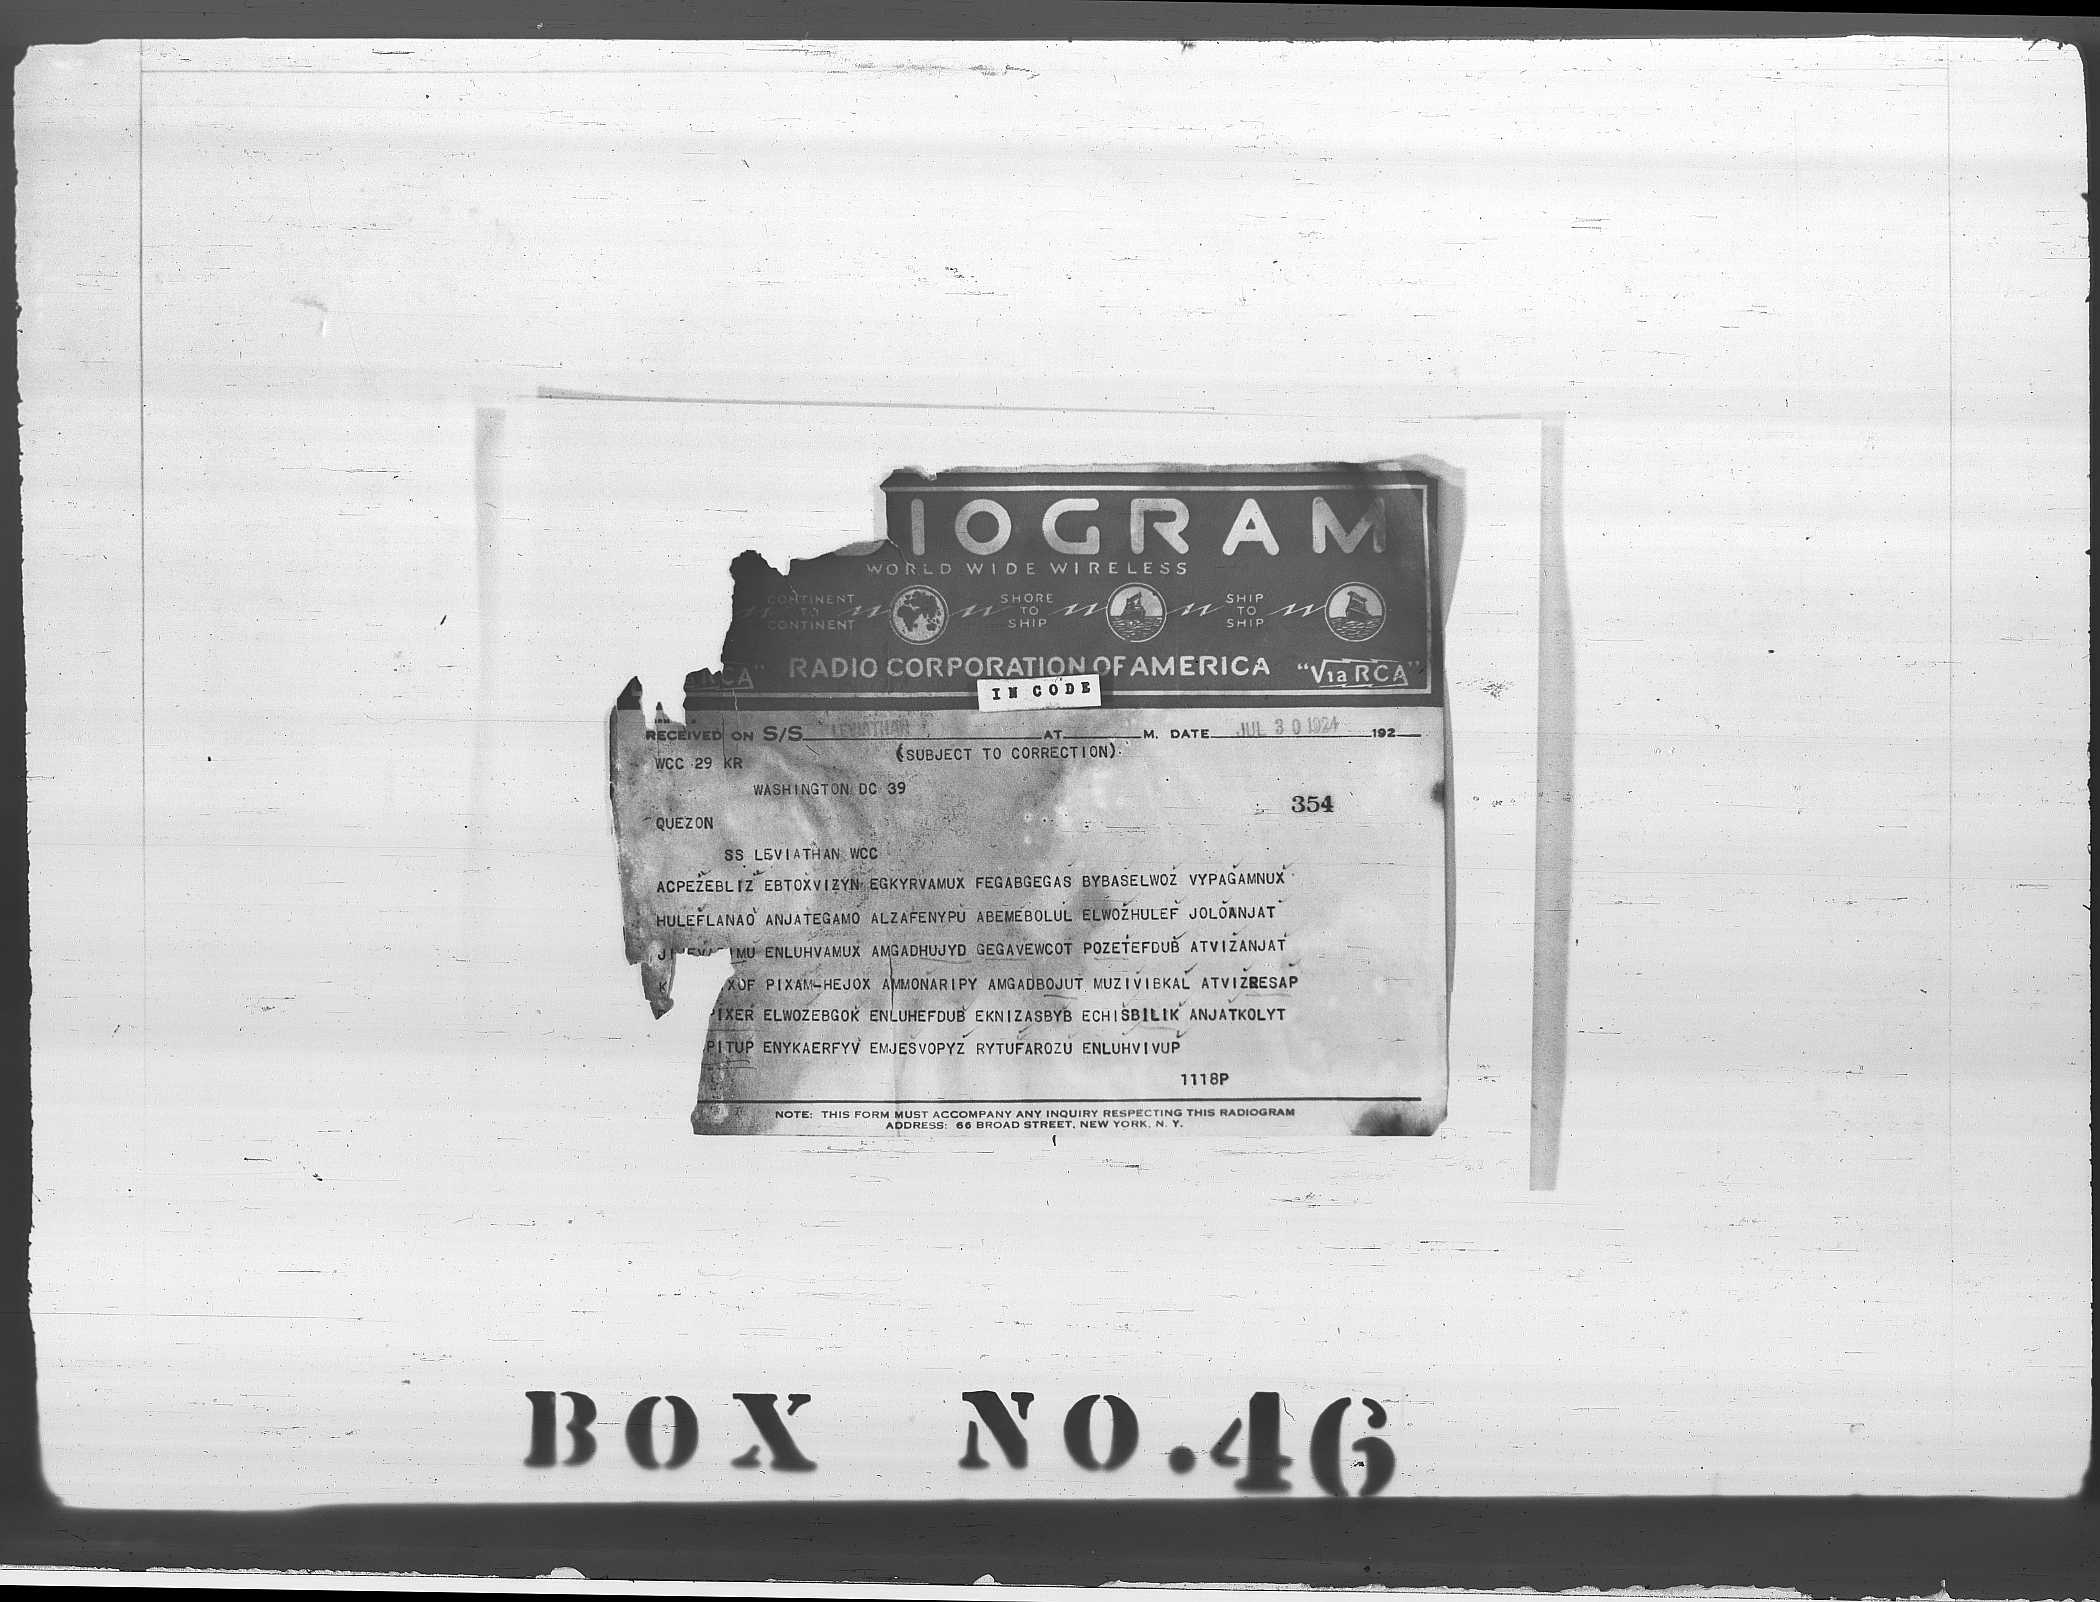 DIOGRAM
WORLD WIDE WIRELESS
CONTINENT TO CONTINENT
SHORE TO SHIP
SHIP TO SHIP
RCA" RADIO CORPORATION OF AMERICA "Via RCA"
IN CODE
RECEIVED ON S/S LEVIATHAN AT M. DATE JUL 30 1924 192
(SUBJECT TO CORRECTION)
WCC 29 KR
WASHINGTON DC 39
354
QUEZON
SS LEVIATHAN WCC
ACPEZEBLIZ EBTOXVIZYN EGKYRVAMUX FEGABGEGAS BYBASELWOZ VYPAGAMNUX
HULEFLANAO ANJATEGAMO ALZAFENYPU ABEMEBOLUL ELWOZHULEF JOLOANJAT
ENLUHVAMUX AMGADHUJYD GEGAVEWCOT POZETEFDUB ATVIZANJAT
K XOF PIXAM-HEJOX AMMONARIPY AMGADBOJUT MUZIVIBKAL ATVIZRESAP
PIXER ELWOZEBGOK ENLUHEFDUB EKNIZASBYB ECHISBILIK ANJATKOLYT
PITUP ENYKAERFYV EMJESVOPYZ RYTUFAROZU ENLUHVIVUP
1118P
NOTE: THIS FORM MUST ACCOMPANY ANY INQUIRY RESPECTING THIS RADIOGRAM
ADDRESS: 66 BROAD STREET, NEW YORK, N. Y.
BOX NO.46